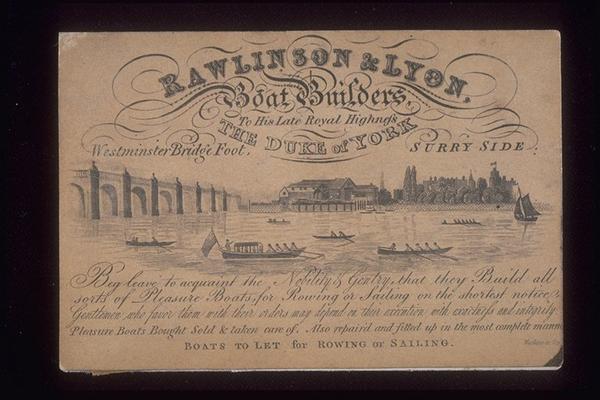 RAWLINSON & LYON,
Boat Builders,
To His Late Royal Highness
THE DUKE of YORK
Westminster Bridge Foot, SURRY SIDE:
Beg leave to acquaint the Nobility & Gentry, that they Build all
sorts of Pleasure Boats, for Rowing or Sailing on the shortest notice,
Gentlemen, who favor them with their orders may depend on their execution with exactness and integrity.
Pleasure Boats Bought Sold & taken care of. Also repair'd and fitted up in the most complete mann
BOATS TO LET for ROWING or SAILING.